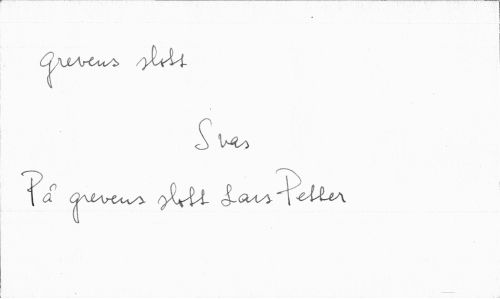 grevens slott
Svas
På grevens slott Lars Petter